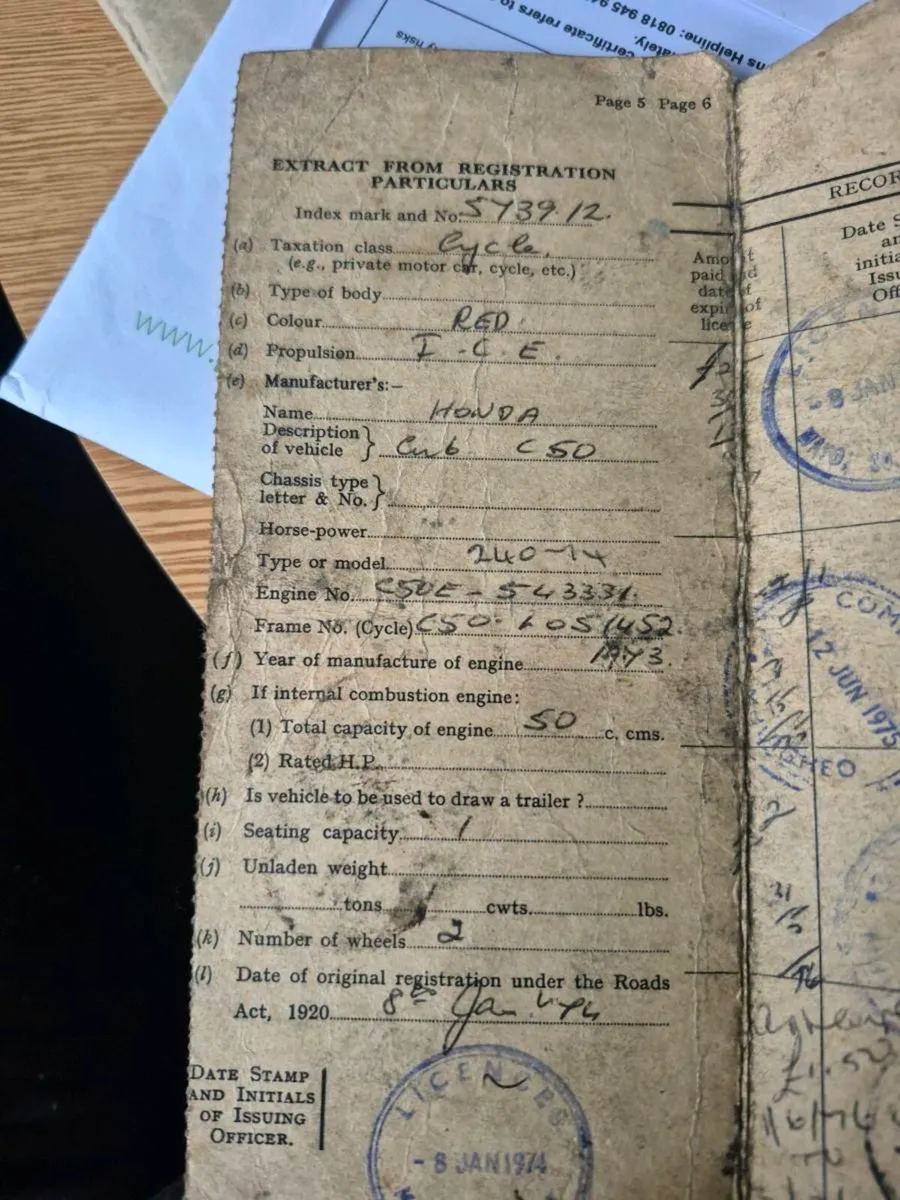 ns Helpline: 0818 945 9
ately.
certificate refers to
y risks
www.
Page 5 Page 6
EXTRACT FROM REGISTRATION
PARTICULARS
Index mark and No. 5739.IZ.
(a) Taxation class Cycle.
(e.g., private motor car, cycle, etc.)
(b) Type of body
(c) Colour RED
(d) Propulsion I.C.E.
(e) Manufacturer's:—
Name HONDA
Description of vehicle } Cub C50
Chassis type letter & No. }
Horse-power
Type or model
Engine No. C50E - 543331.
Frame No. (Cycle)
(f) Year of manufacture of engine 1973.
(g) If internal combustion engine:
(1) Total capacity of engine 50 c. cms.
(2) Rated H.P.
(h) Is vehicle to be used to draw a trailer ?
(i) Seating capacity 1
(j) Unladen weight
tons cwts. lbs.
(k) Number of wheels 2
(l) Date of original registration under the Roads
Act, 1920 8th Jan. 1974
DATE STAMP
AND INITIALS
OF ISSUING
OFFICER.
LICENSES
- 8 JAN 1974
Amount
paid and
date of
expiry of
licence
RECOR
Date S
an
initia
Issu
Off
LIC
- 8 JAN
MAYO.
COM
12 JUN 1975
£1.52